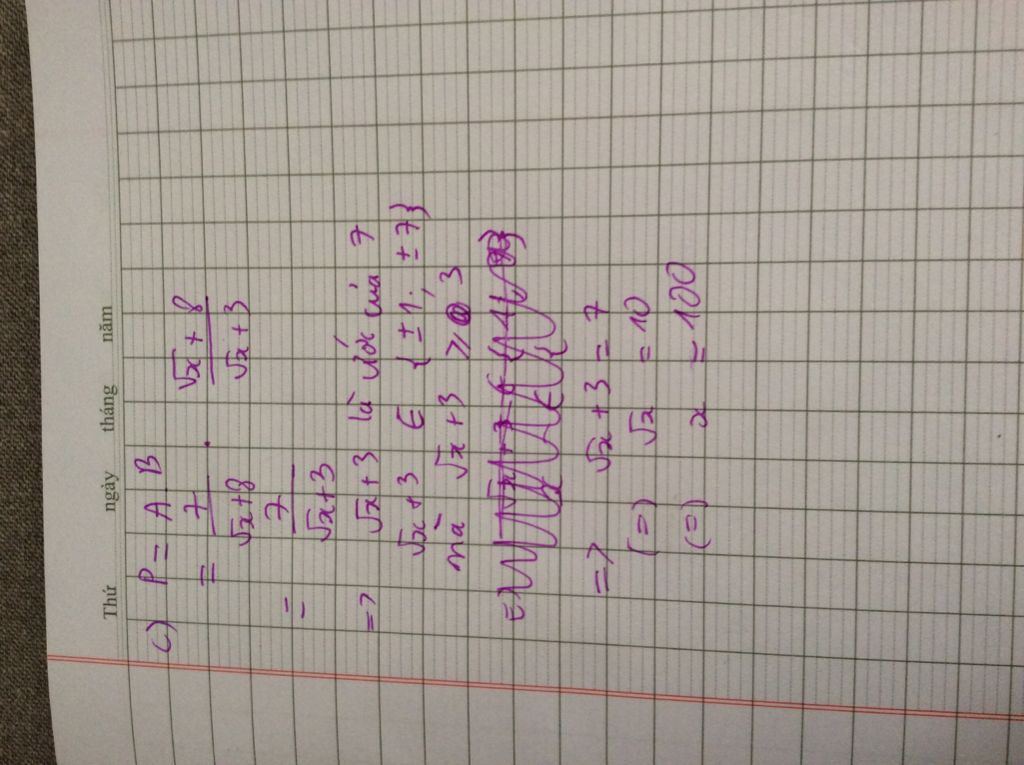 Thứ ngày tháng năm
c) P = A B
= 7/√x+8 . √x+8/√x+3
= 7/√x+3
=> √x+3 là ước của 7
√x+3 ∈ {±1; ±7}
mà √x+3 ≥ 3
=> √x+3 = 7
(=) √x = 10
(=) x = 100